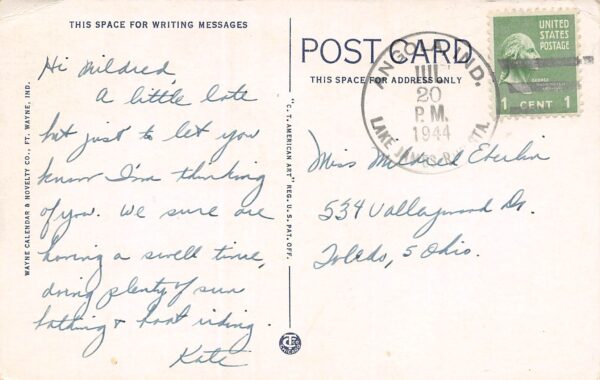 THIS SPACE FOR WRITING MESSAGES
Hi Mildred,
A little late
but just to let you
know I'm thinking
of you. We sure are
having a swell time,
doing plenty of sun
bathing & boat riding.
Kate
WAYNE CALENDAR & NOVELTY CO., FT. WAYNE, IND.
"C. T. AMERICAN ART" REG. U. S. PAT. OFF.
POST CARD
THIS SPACE FOR ADDRESS ONLY
ANGOLA, IND.
JUL
20
P.M.
1944
LAKE JAMES STA.
UNITED
STATES
POSTAGE
1 CENT 1
Miss Mildred Eberlin
534 Valleywood Dr.
Toledo, 5 Ohio.